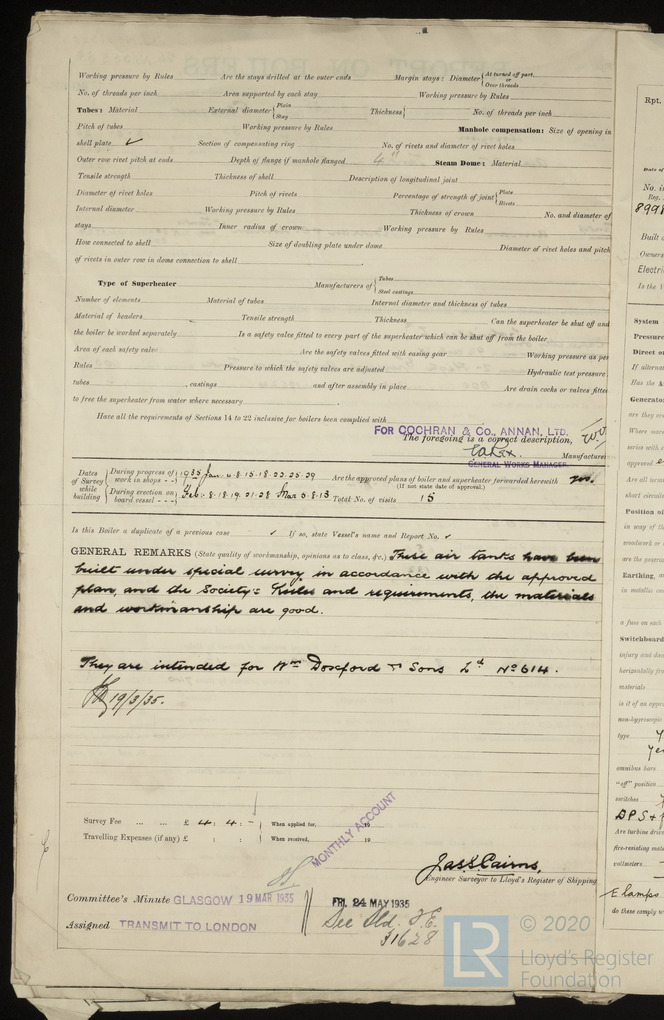 Working pressure by Rules Are the stays drilled at the outer ends Margin stays: Diameter { At turned off part. or Over threads
No. of threads per inch Area supported by each stay Working pressure by Rules
Tubes: Material External diameter { Plain Stay Thickness { No. of threads per inch
Pitch of tubes Working pressure by Rules Manhole compensation: Size of opening in
shell plate ✓ Section of compensating ring No. of rivets and diameter of rivet holes
Outer row rivet pitch at ends Depth of flange if manhole flanged 4" Steam Dome: Material
Tensile strength Thickness of shell Description of longitudinal joint
Diameter of rivet holes Pitch of rivets Percentage of strength of joint { Plate Rivets
Internal diameter Working pressure by Rules Thickness of crown No. and diameter of
stays Inner radius of crown Working pressure by Rules
How connected to shell Size of doubling plate under dome Diameter of rivet holes and pitch
of rivets in outer row in dome connection to shell
Type of Superheater Manufacturers of { Tubes Steel castings
Number of elements Material of tubes Internal diameter and thickness of tubes
Material of headers Tensile strength Thickness Can the superheater be shut off and
the boiler be worked separately Is a safety valve fitted to every part of the superheater which can be shut off from the boiler
Area of each safety valve Are the safety valves fitted with easing gear Working pressure as per
Rules Pressure to which the safety valves are adjusted Hydraulic test pressure
tubes , castings and after assembly in place Are drain cocks or valves fitted
to free the superheater from water where necessary
Have all the requirements of Sections 14 to 22 inclusive for boilers been complied with
FOR COCHRAN & Co., ANNAN, LTD.
The foregoing is a correct description,
Manufacturer
GENERAL WORKS MANAGER.
Dates of Survey while building { During progress of work in shops - - 1935 Jan. 4.8.15.18.22.25.29 Are the approved plans of boiler and superheater forwarded herewith yes.
(If not state date of approval.)
During erection on board vessel - - - Feb. 8.18.19.21.28 Mar 5.8.13 Total No. of visits 15
Is this Boiler a duplicate of a previous case ✓ If so, state Vessel's name and Report No. ✓
GENERAL REMARKS (State quality of workmanship, opinions as to class, &c.) These air tanks have been
built under special survey in accordance with the approved
plan, and the Society's Rules and requirements, the materials
and workmanship are good.
They are intended for Wm Doxford & Sons Ld No 614.
19/3/35.
Survey Fee ... ... £ 4 : 4 : - When applied for, 19
Travelling Expenses (if any) £ : : When received, 19
MONTHLY ACCOUNT
Jas S Cairns,
Engineer Surveyor to Lloyd's Register of Shipping
Committee's Minute GLASGOW 19 MAR 1935
FRI. 24 MAY 1935
Assigned TRANSMIT TO LONDON
See Sld. F.E.
31628
LR © 2020
Lloyd's Register
Foundation
Rpt.
Date of
No. in
Reg.
8998
Built
Owners
Electri
Is the
System
Pressure
Direct o
If alterna
Has the
Generato
are they
Where more
series with
oppressed
Are all
short circuits
Position of
in way of the
woodwork or
are the
Earthing,
in metallic
a fuse on each
Switchboard
injury and
horizontally
materials
is it of an
non-hygroscopic
type
omnibus bars
"off" position
switches
DPS +
Are turbine
fire-resisting
voltmeters
E lamps
do these comply